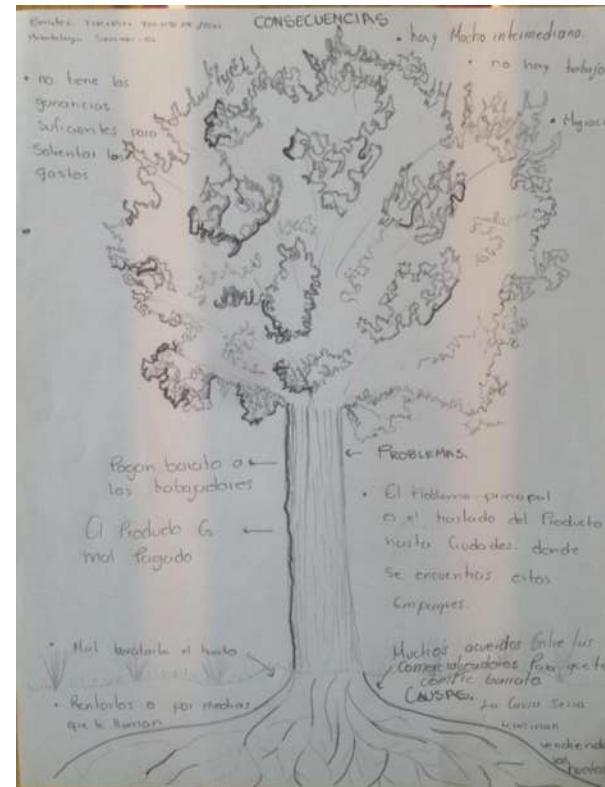 CONSECUENCIAS
• hay Mucho intermediario.
• no hay trabajo
• no tiene las
ganancias
Suficientes para
Solventar los
gastos
Pagan barato a
los trabajadores
El Producto Es
mal Pagado
PROBLEMAS.
• El Problema principal
o el traslado del Producto
hasta Ciudades. donde
se encuentras estos
Empaques.
• Mal baratarlo el
• Rentarlos o por medias
que le llaman
Muchos acuerdos Entre las
Comercializadoras Para que te
barrata
CAUSAS.
La Causa Seria
terminan
vendiendo
las huertas